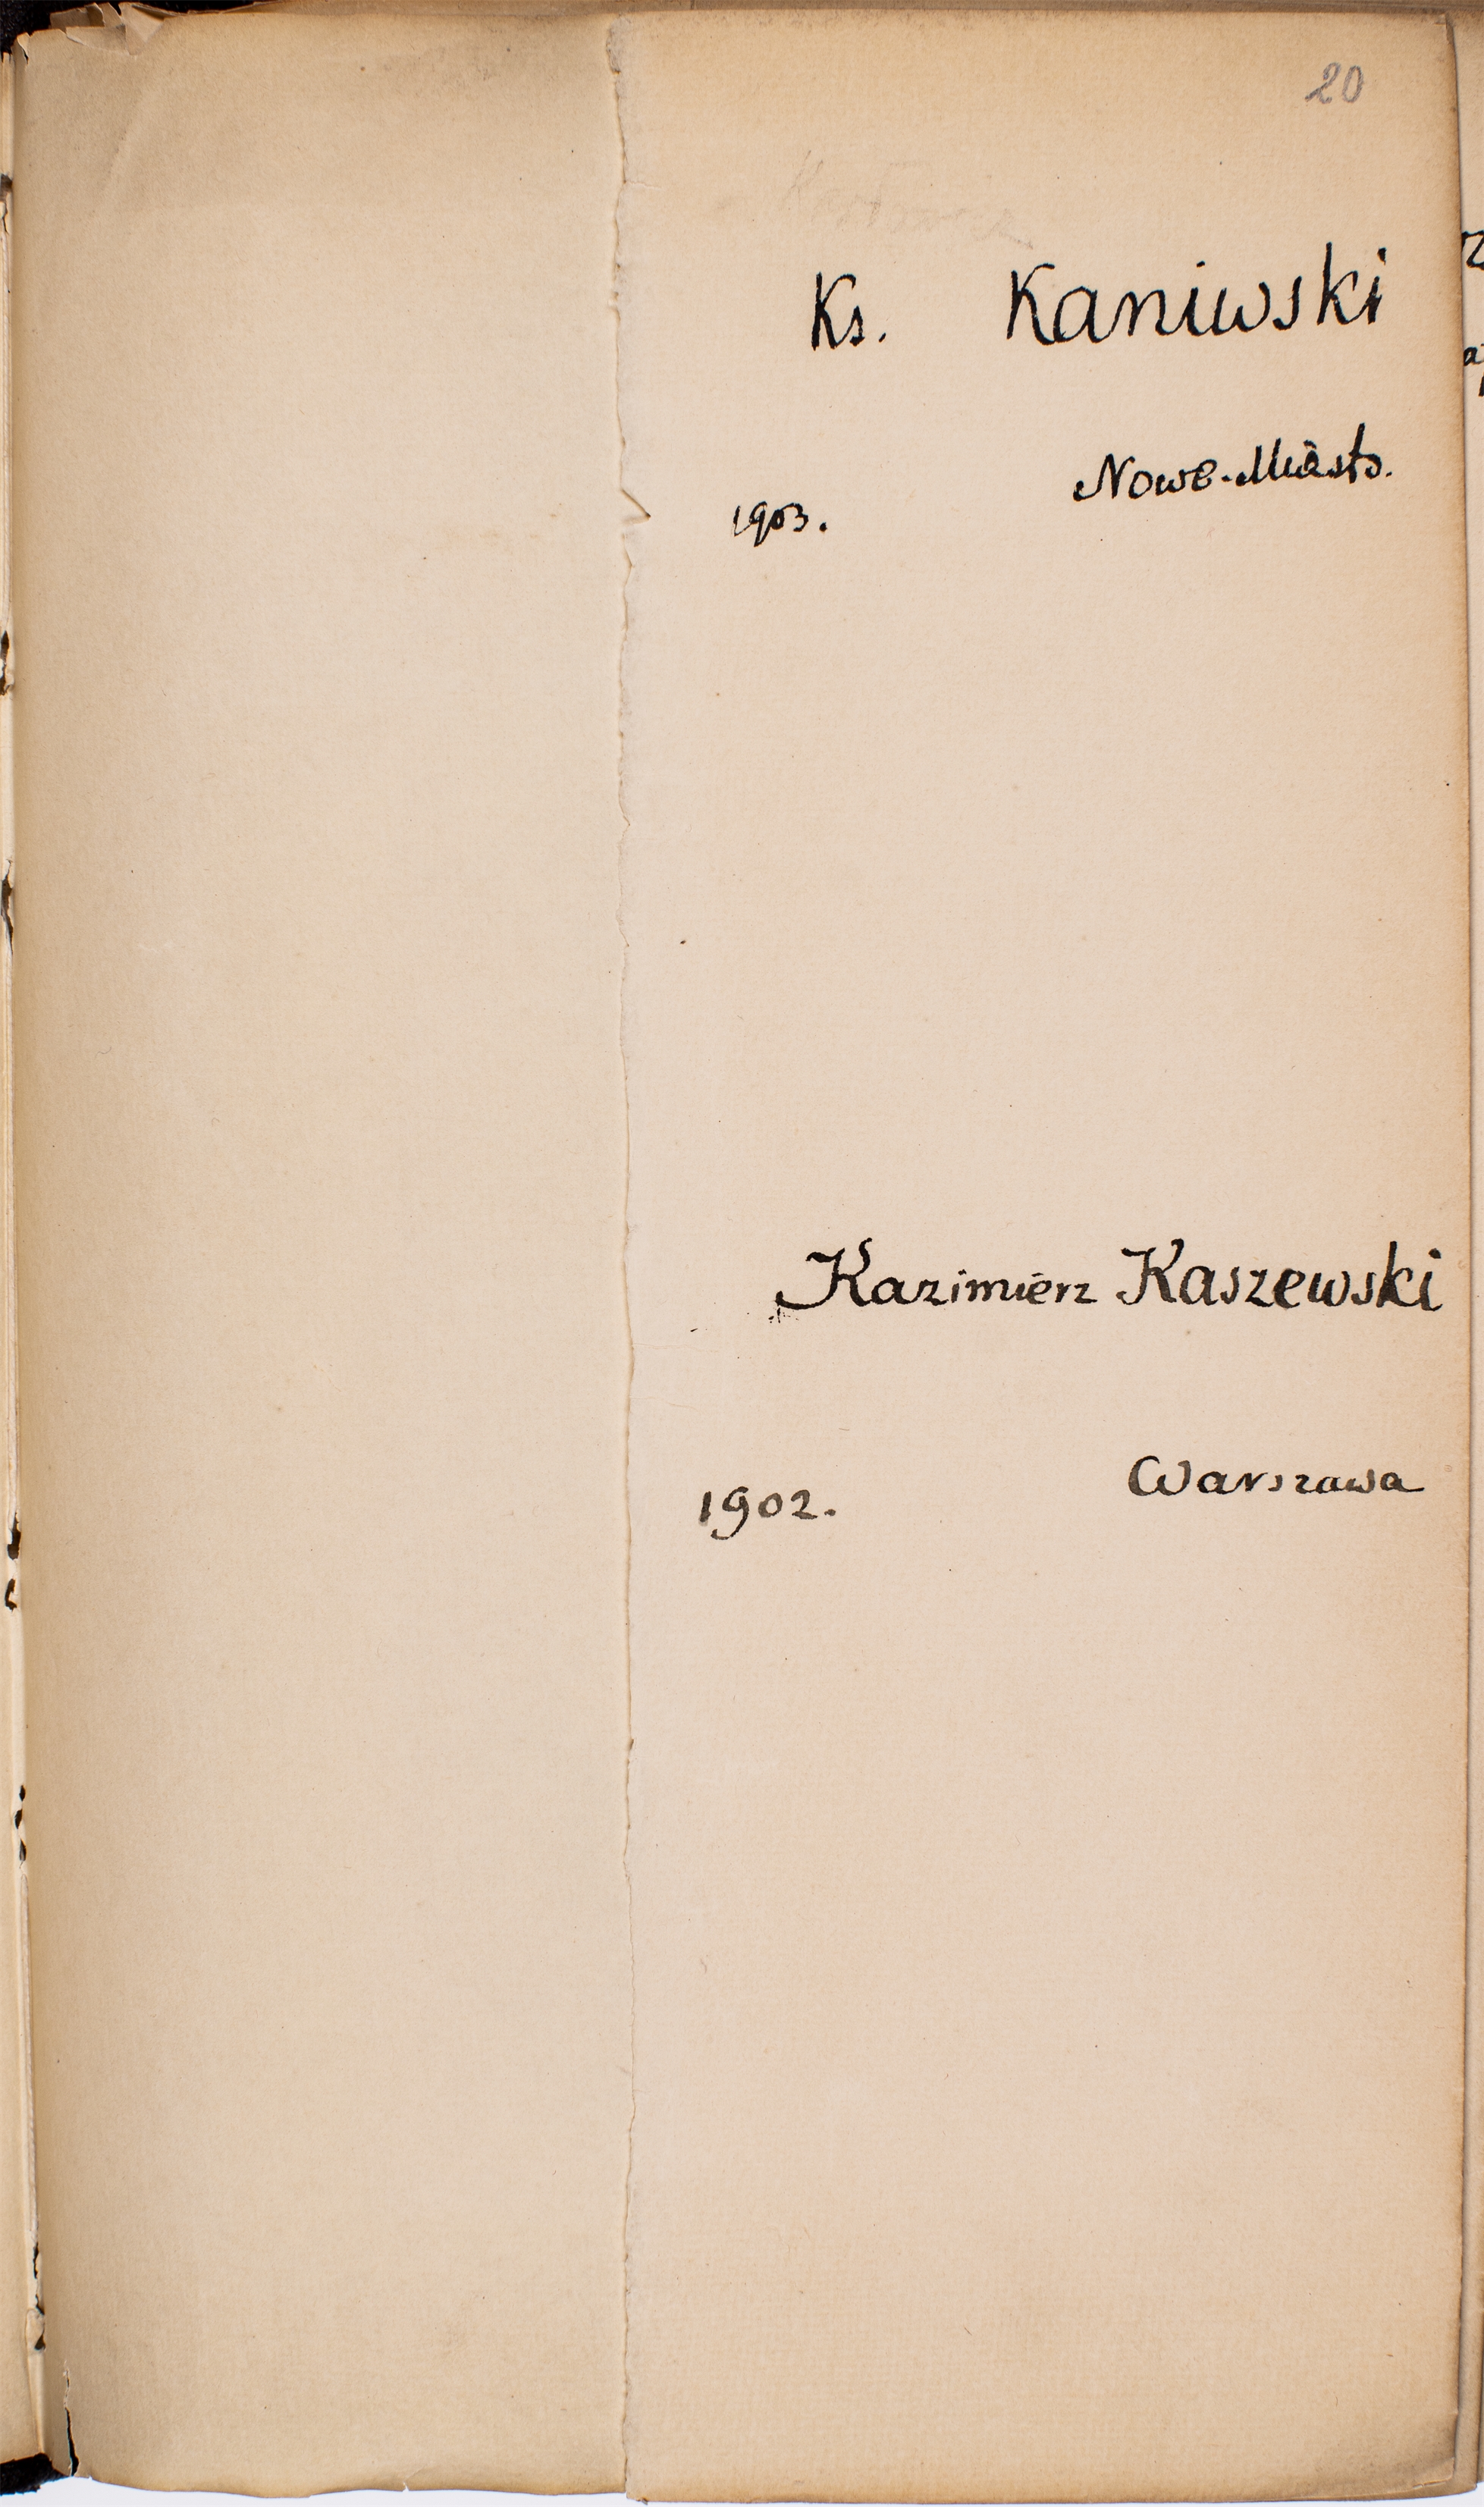 20
Ks. Kaniwski
Nowe-Miasto.
1903.
Kazimierz Kaszewski
Warszawa
1902.